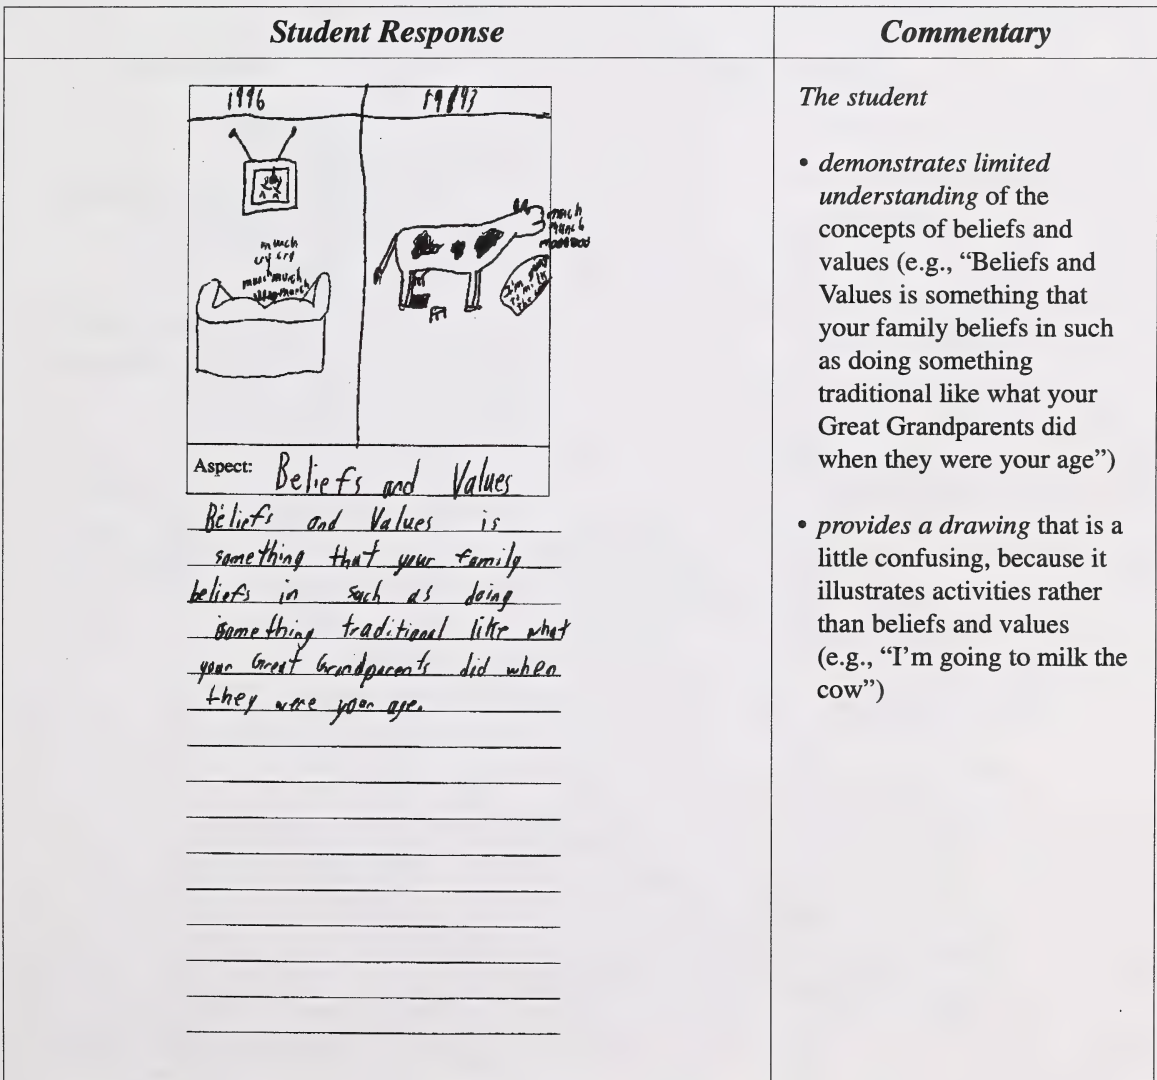 Student Response
Commentary
1996
munch
cry cry
munch
munch
munch
I'm going
to milk
the
Aspect: Beliefs and Values
Beliefs and Values is
something that your family
beliefs in such as doing
something traditional like what
your Great Grandparents did when
they were your age.
The student
• demonstrates limited
understanding of the
concepts of beliefs and
values (e.g., “Beliefs and
Values is something that
your family beliefs in such
as doing something
traditional like what your
Great Grandparents did
when they were your age”)
• provides a drawing that is a
little confusing, because it
illustrates activities rather
than beliefs and values
(e.g., “I'm going to milk the
cow”)